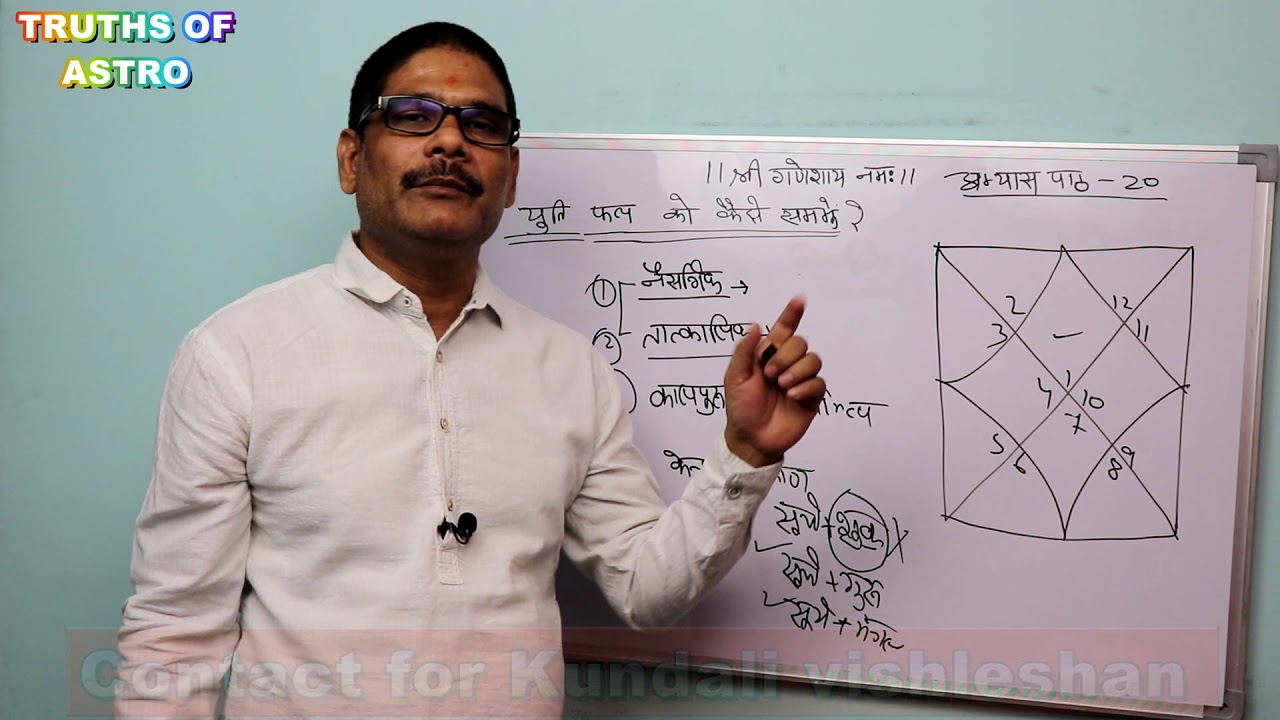 TRUTHS OF
ASTRO
॥ श्री गणेशाय नमः॥
अभ्यास पाठ - 20
युति फल को कैसे समझें ?
① नैसर्गिक →
② तात्कालिक
सूर्य + शुक्र X
✓ सूर्य + गुरू
✓ सूर्य + मंगल
2 12
3 11
1
4 10
7
5 9
6 8
Contact for Kundali vishleshan